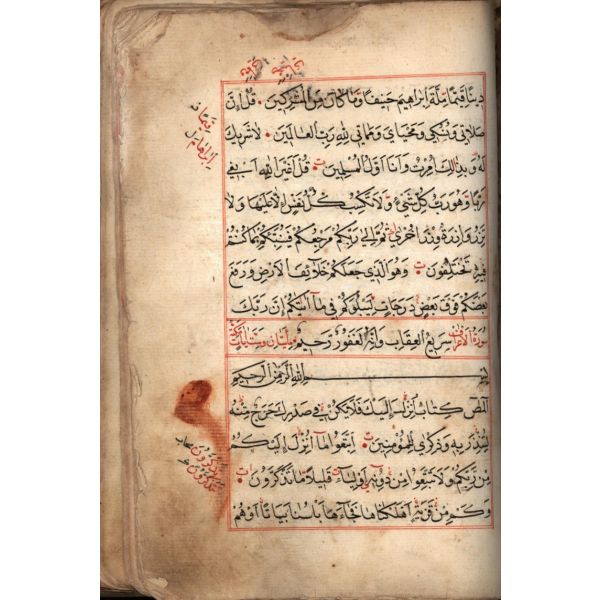 دينا قيما ملة ابراهيم حنيفا وما كان من المشركين قل ان
صلاتي ونسكي ومحياي ومماتي لله رب العالمين لا شريك
له وبذلك امرت وانا اول المسلمين قل اغير الله ابغي
ربا وهو رب كل شيء ولا تكسب كل نفس الا عليها ولا
تزر وازرة وزر اخرى ثم الى ربكم مرجعكم فينبئكم بما كنتم
فيه تختلفون وهو الذي جعلكم خلائف الارض ورفع
بعضكم فوق بعض درجات ليبلوكم في ما آتيكم ان ربك
سريع العقاب وانه لغفور رحيم
سورة الاعراف مائتان وست آيات
بسم الله الرحمن الرحيم
المص كتاب انزل اليك فلا يكن في صدرك حرج منه
لتنذر به وذكرى للمؤمنين اتبعوا ما انزل اليكم
من ربكم ولا تتبعوا من دونه اولياء قليلا ما تذكرون
وكم من قرية اهلكناها فجاءها باسنا بياتا او هم
قيما
ابراهام
تذكرون